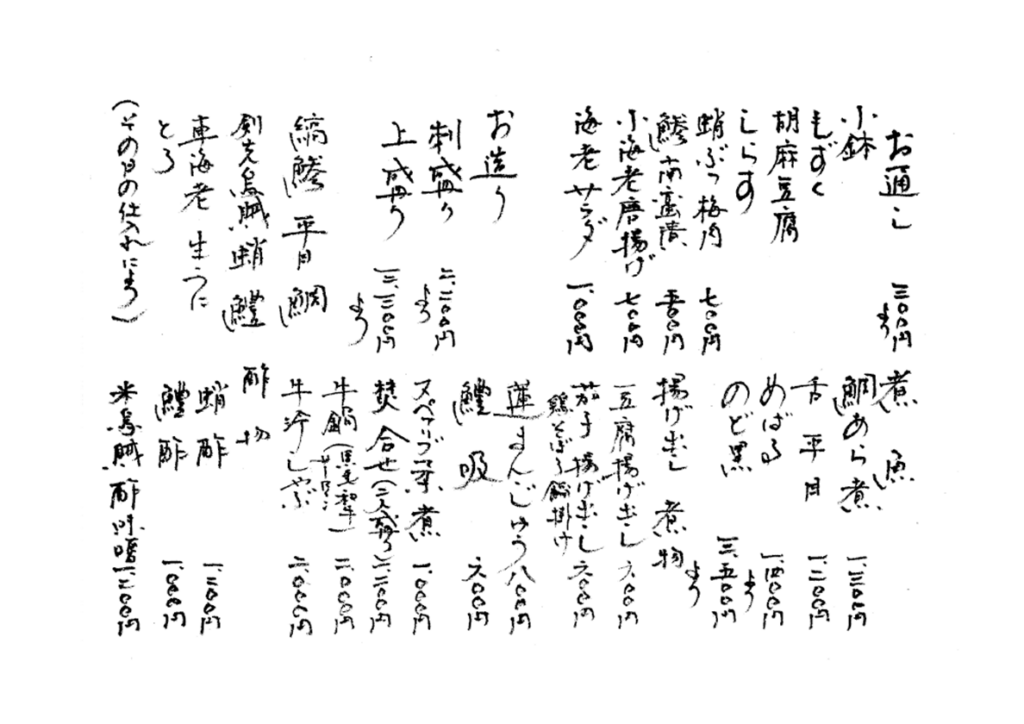 お通し 三〇〇円より
小鉢
もずく
胡麻豆腐
しらす
蛸ぶつ梅肉 七〇〇円
鯵南蛮漬 五〇〇円
小海老唐揚げ 七〇〇円
海老サラダ 一、〇〇〇円
お造り
刺盛り 二、二〇〇円より
上盛り 三、三〇〇円より
縞鯵 平目 鯛
剣先烏賊 蛸 鱧
車海老 生うに
とろ
(その日の仕入れによる)
煮魚
鯛あら煮 一、三〇〇円
舌平目 一、二〇〇円
めばる 一、四〇〇円より
のど黒 三、五〇〇円より
揚げ出し 煮物
豆腐揚げ出し 六〇〇円
茄子揚げ出し 六〇〇円
鶏そぼろ餡掛け
蓮まんじゅう 八〇〇円
鱧吸 六〇〇円
スペアリブ 煮 一、〇〇〇円
焚合せ(二人盛り) 二、二〇〇円
牛鍋(黒毛和牛サーロイン) 二、〇〇〇円
牛冷しゃぶ 二、〇〇〇円
酢物
蛸酢 一、二〇〇円
鱧酢 一、〇〇〇円
米烏賊酢味噌 一、二〇〇円